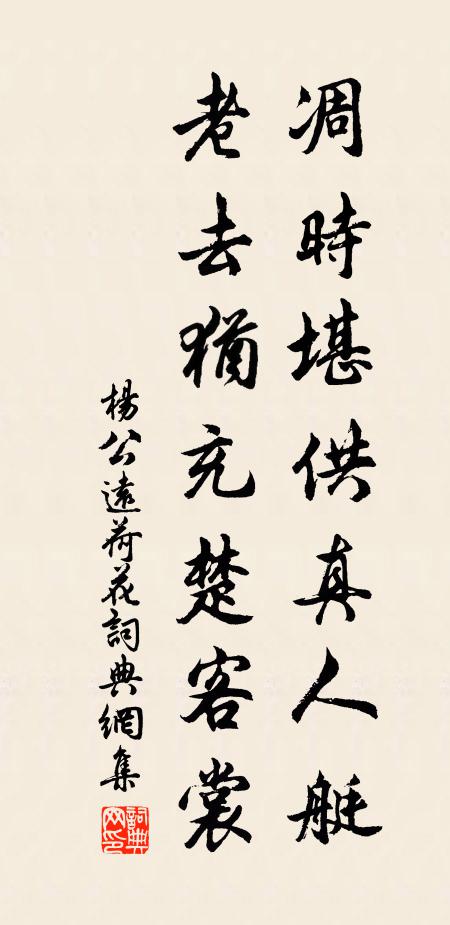 凋時堪供真人艇
老去猶充楚客裳
楊公遠荷花詞典網集
詞典網印